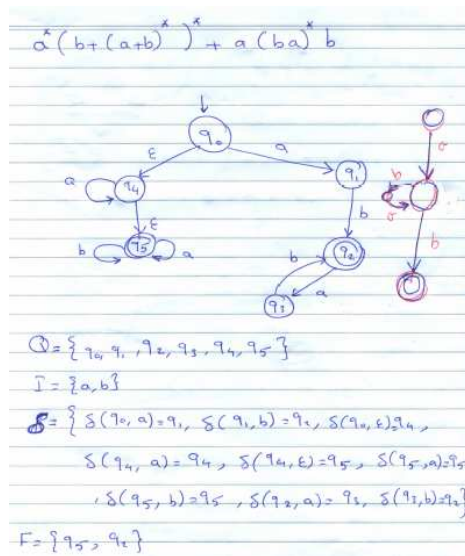 a* (b + (a+b)*)* + a (ba)* b
q₀
ε
a
a
q₄
q₁
b
a
ε
b
b
q₅
a
b
q₂
b
a
q₃
Q = { q₀, q₁, q₂, q₃, q₄, q₅ }
I = {a, b}
δ = { δ(q₀, a) = q₁, δ(q₁, b) = q₂, δ(q₀, ε) = q₄,
δ(q₄, a) = q₄, δ(q₄, ε) = q₅, δ(q₅, a) = q₅
, δ(q₅, b) = q₅, δ(q₂, a) = q₃, δ(q₃, b) = q₂}
F = { q₅, q₂ }